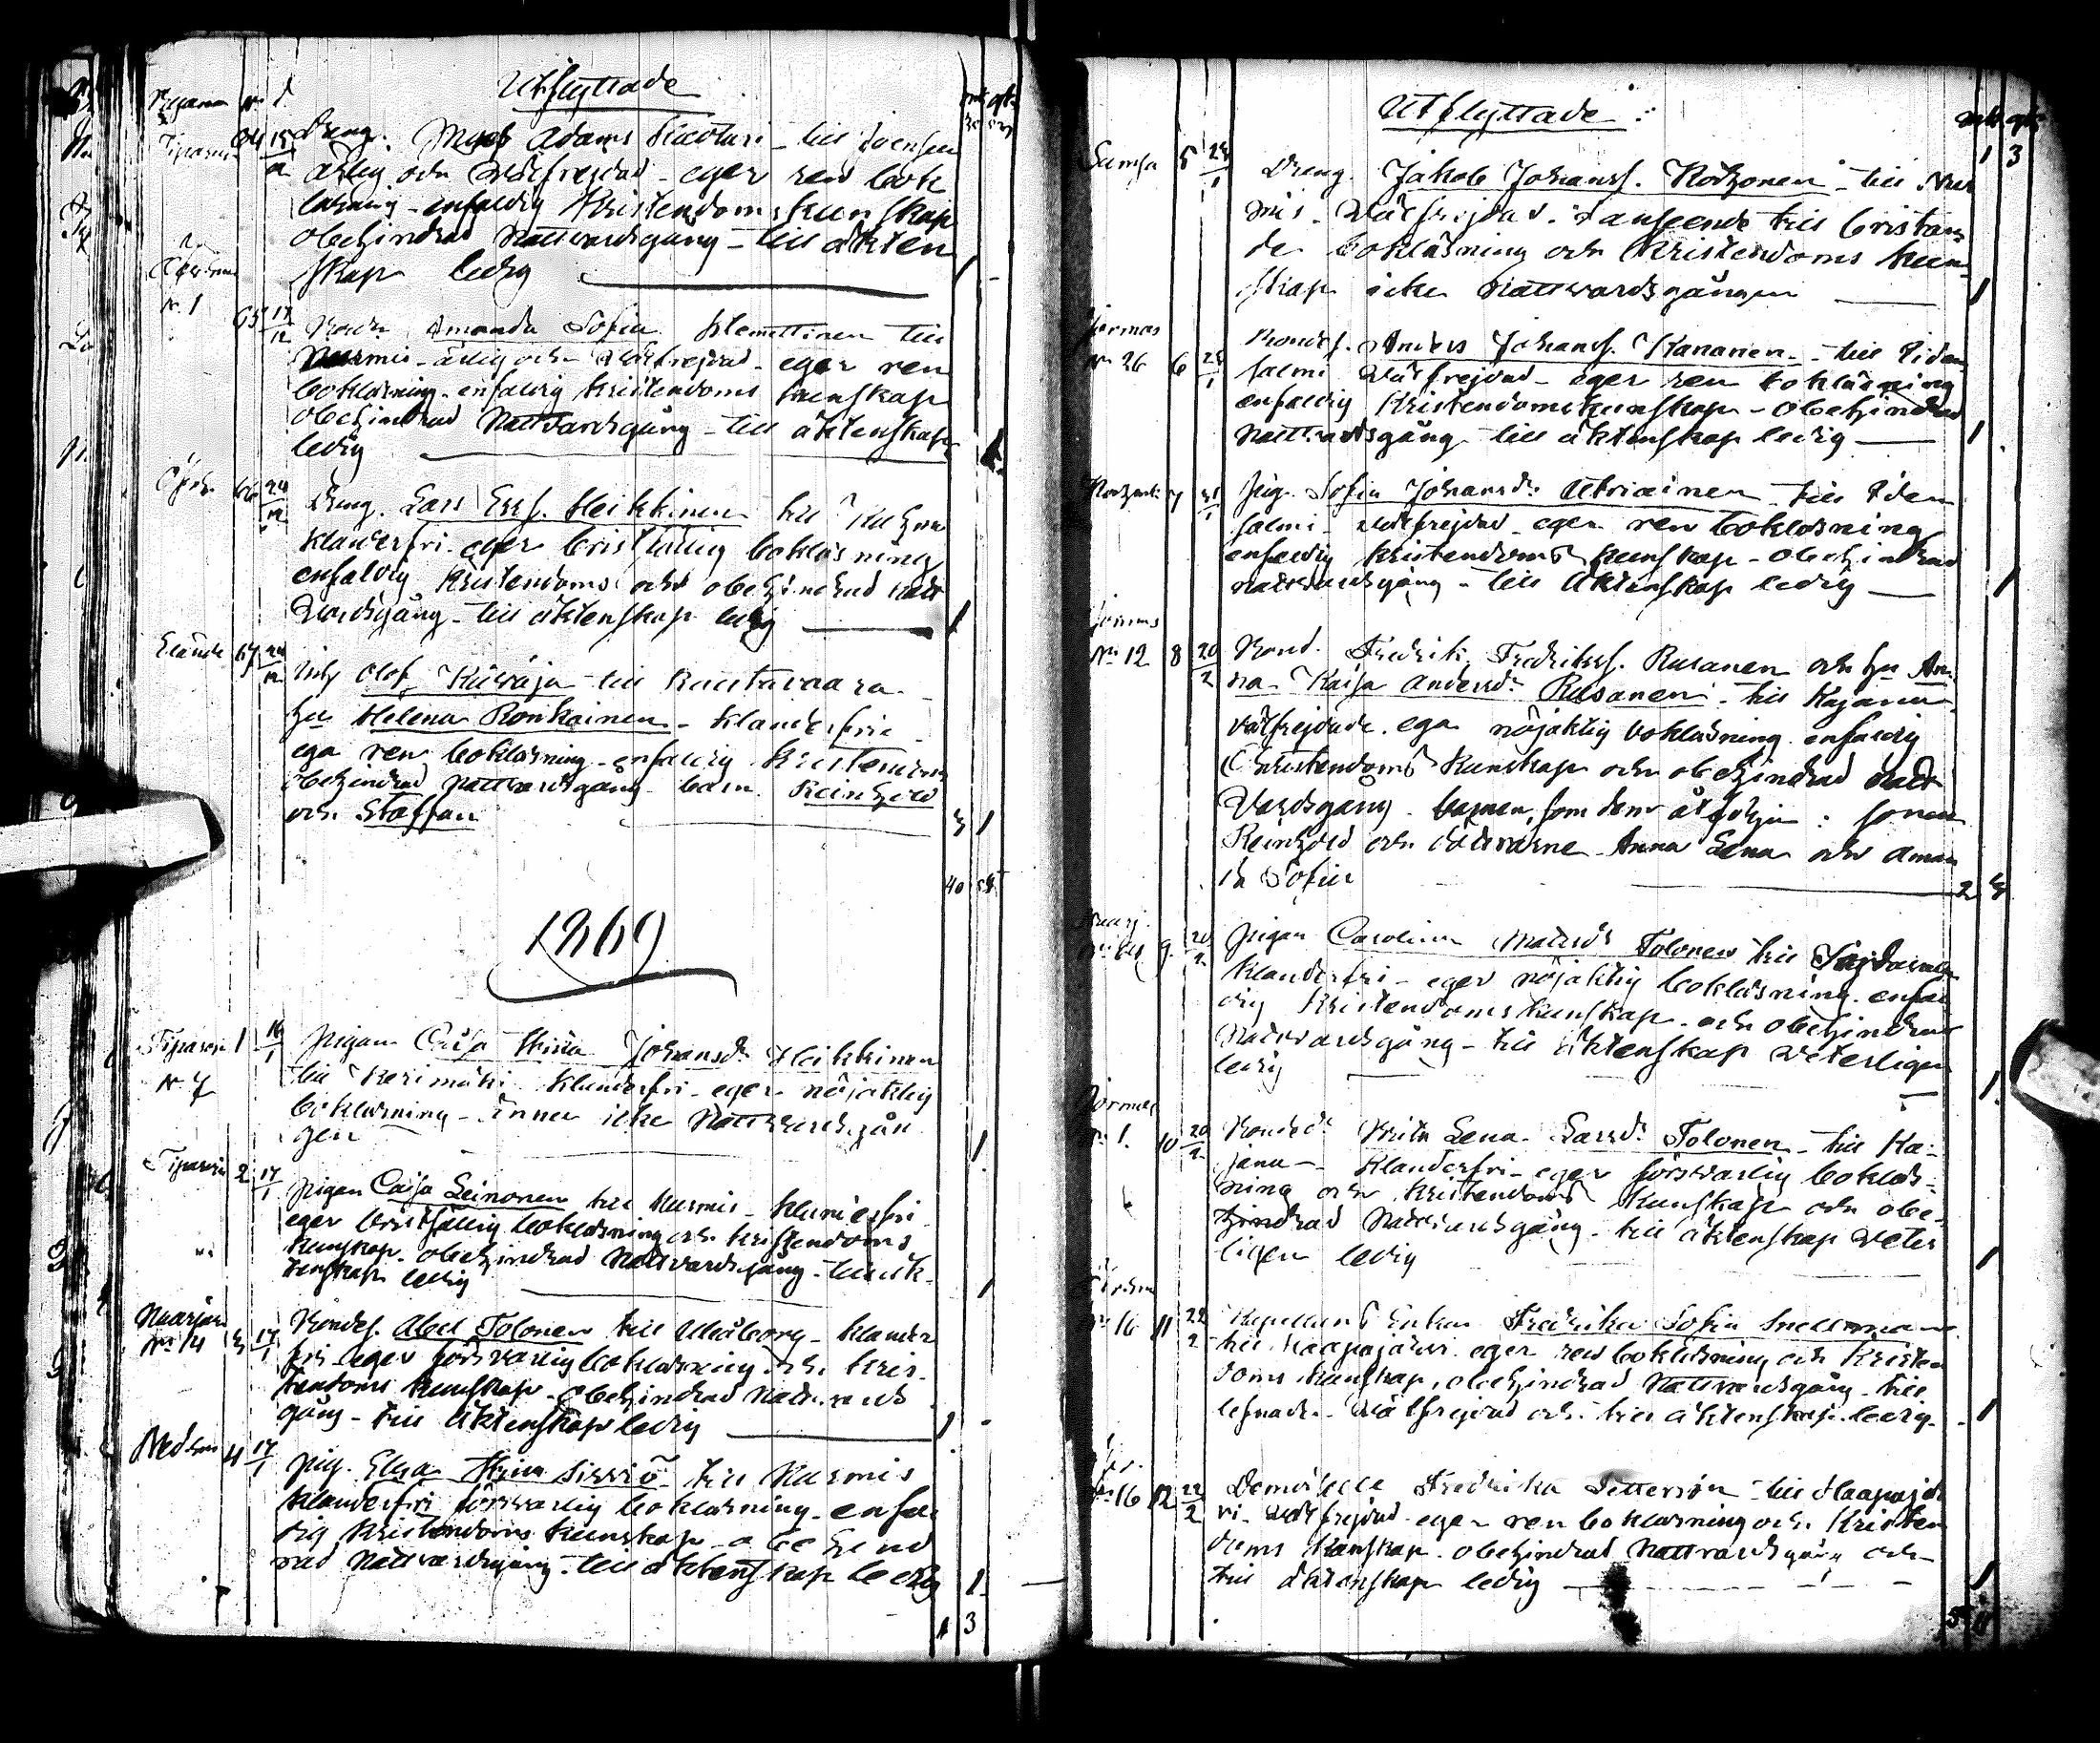 Utflyttade
Tiparas 64 15/12 Dreng. Adams till Joensuu
ärlig och välfrejdad - eger ren bok
läsning - enfaldig Kristendoms kunskap
obehindrad Nattvardsgång - till äkten
skap ledig 1
N. 1 65 17/12 Amanda Sofia Klemettinen till
Nurmis - ärlig och välfrejdad - eger ren
bokläsning - enfaldig Kristendoms kunskap
obehindrad Nattvardsgång - till äktenskap
ledig 1
66 24/12 Dreng. Lars Ersf. Heikkinen till Kuhmo
klanderfri - eger bristfällig bokläsning
enfaldig Kristendoms och obehindrad natt
vardsgång - till äktenskap ledig 1
67 24/12 Inh Olof till Rautavaara
hu Helena Ronkainen - klanderfria
ega ren bokläsning - enfaldig Kristendoms
obehindrad Nattvardsgång - barn Reinhold
och Staffan 3 1
40
1869
Tiparas 1 16/1 Pigan Caisa Stina Johansd. Heikkinen
N. 7 till Kerimäki klanderfri - eger nöjaktig
bokläsning - ännu icke Nattvardsgån
gen 1
Tiparas 2 17/1 Pigan Caisa Leinonen till Nurmis - klanderfri
eger bristfällig bokläsning och kristendoms
kunskap - obehindrad Nattvardsgång - till äk-
tenskap ledig 1
Naarjärvi
No 14 3 17/1 Bondes. Abel Tolonen till Uleåborg - klander
fri - eger försvarlig bokläsning och kris-
tendoms kunskap - obehindrad Nattvards
gång - till äktenskap ledig 1
4 17/1 Pig. Elsa Stina Sirviö till Nurmis
klanderfri försvarlig bokläsning - enfal
dig Kristendoms kunskap - obehind
rad Nattvardsgång - till äktenskap ledig 1
1 3
Utflyttade
1 3
5 25/1 Dreng. Jakob Johanss. Korhonen - till Nur
mis. Välfrejdad. I anseende till bristan
de bokläsning och Kristendoms kun
skap icke Nattvardsgången 1
Jormas
No 26 6 25/1 Bondes. Anders Johanss. Kananen - till Iden
salmi Välfrejdad - eger ren bokläsning
enfaldig Kristendoms kunskap - obehindrad
Nattvardsgång till äktenskap ledig 1
7 31/1 Pig. Sofia Johansd. Utriainen till Iden
salmi - välfrejdad - eger ren bokläsning
enfaldig Kristendoms kunskap - obehindrad
nattvardsgång - till äktenskap ledig 1
Jormas
No 12 8 20/2 Bond. Fredrik Fredrikss. Rusanen och hu An
na Kaisa Andersd. Rusanen - till Kajana
välfrejdade. ega nöjaktig bokläsning enfaldig
Christendoms kunskap och obehindrad natt
vardsgång. barnen, som dem åtfölja: sonen
Reinhold och döttrarne Anna Lena och Aman
da Sofia 2 3
9 20/2 Pigan Carolina Matsd. Tolonen till
klanderfri - eger nöjaktig bokläsning - enfal
dig Kristendoms kunskap - och obehindrad
Nattvardsgång - till äktenskap veterligen
ledig 1
Jormas
No 1. 10 20/2 Bonded. Brita Lena Larsd. Tolonen - till Ka-
jana - klanderfri - eger försvarlig bokläs-
ning och kristendoms kunskap och obe-
hindrad Nattvardsgång - till äktenskap veter
ligen ledig 1
No 16 11 22/2 Kapellans Enkan Fredrika Sofia Snellman
till Haapajärvi eger ren bokläsning och Kristen
doms kunskap, obehindrad Nattvardsgång - till
lefnaden välfrejdad och till äktenskap ledig 1
No 16 12 22/2 Demoiselle Fredrika till Haapajär
vi - välfrejdad - eger ren bokläsning och Kristen
doms kunskap - obehindrad Nattvardsgång och
till äktenskap ledig 1